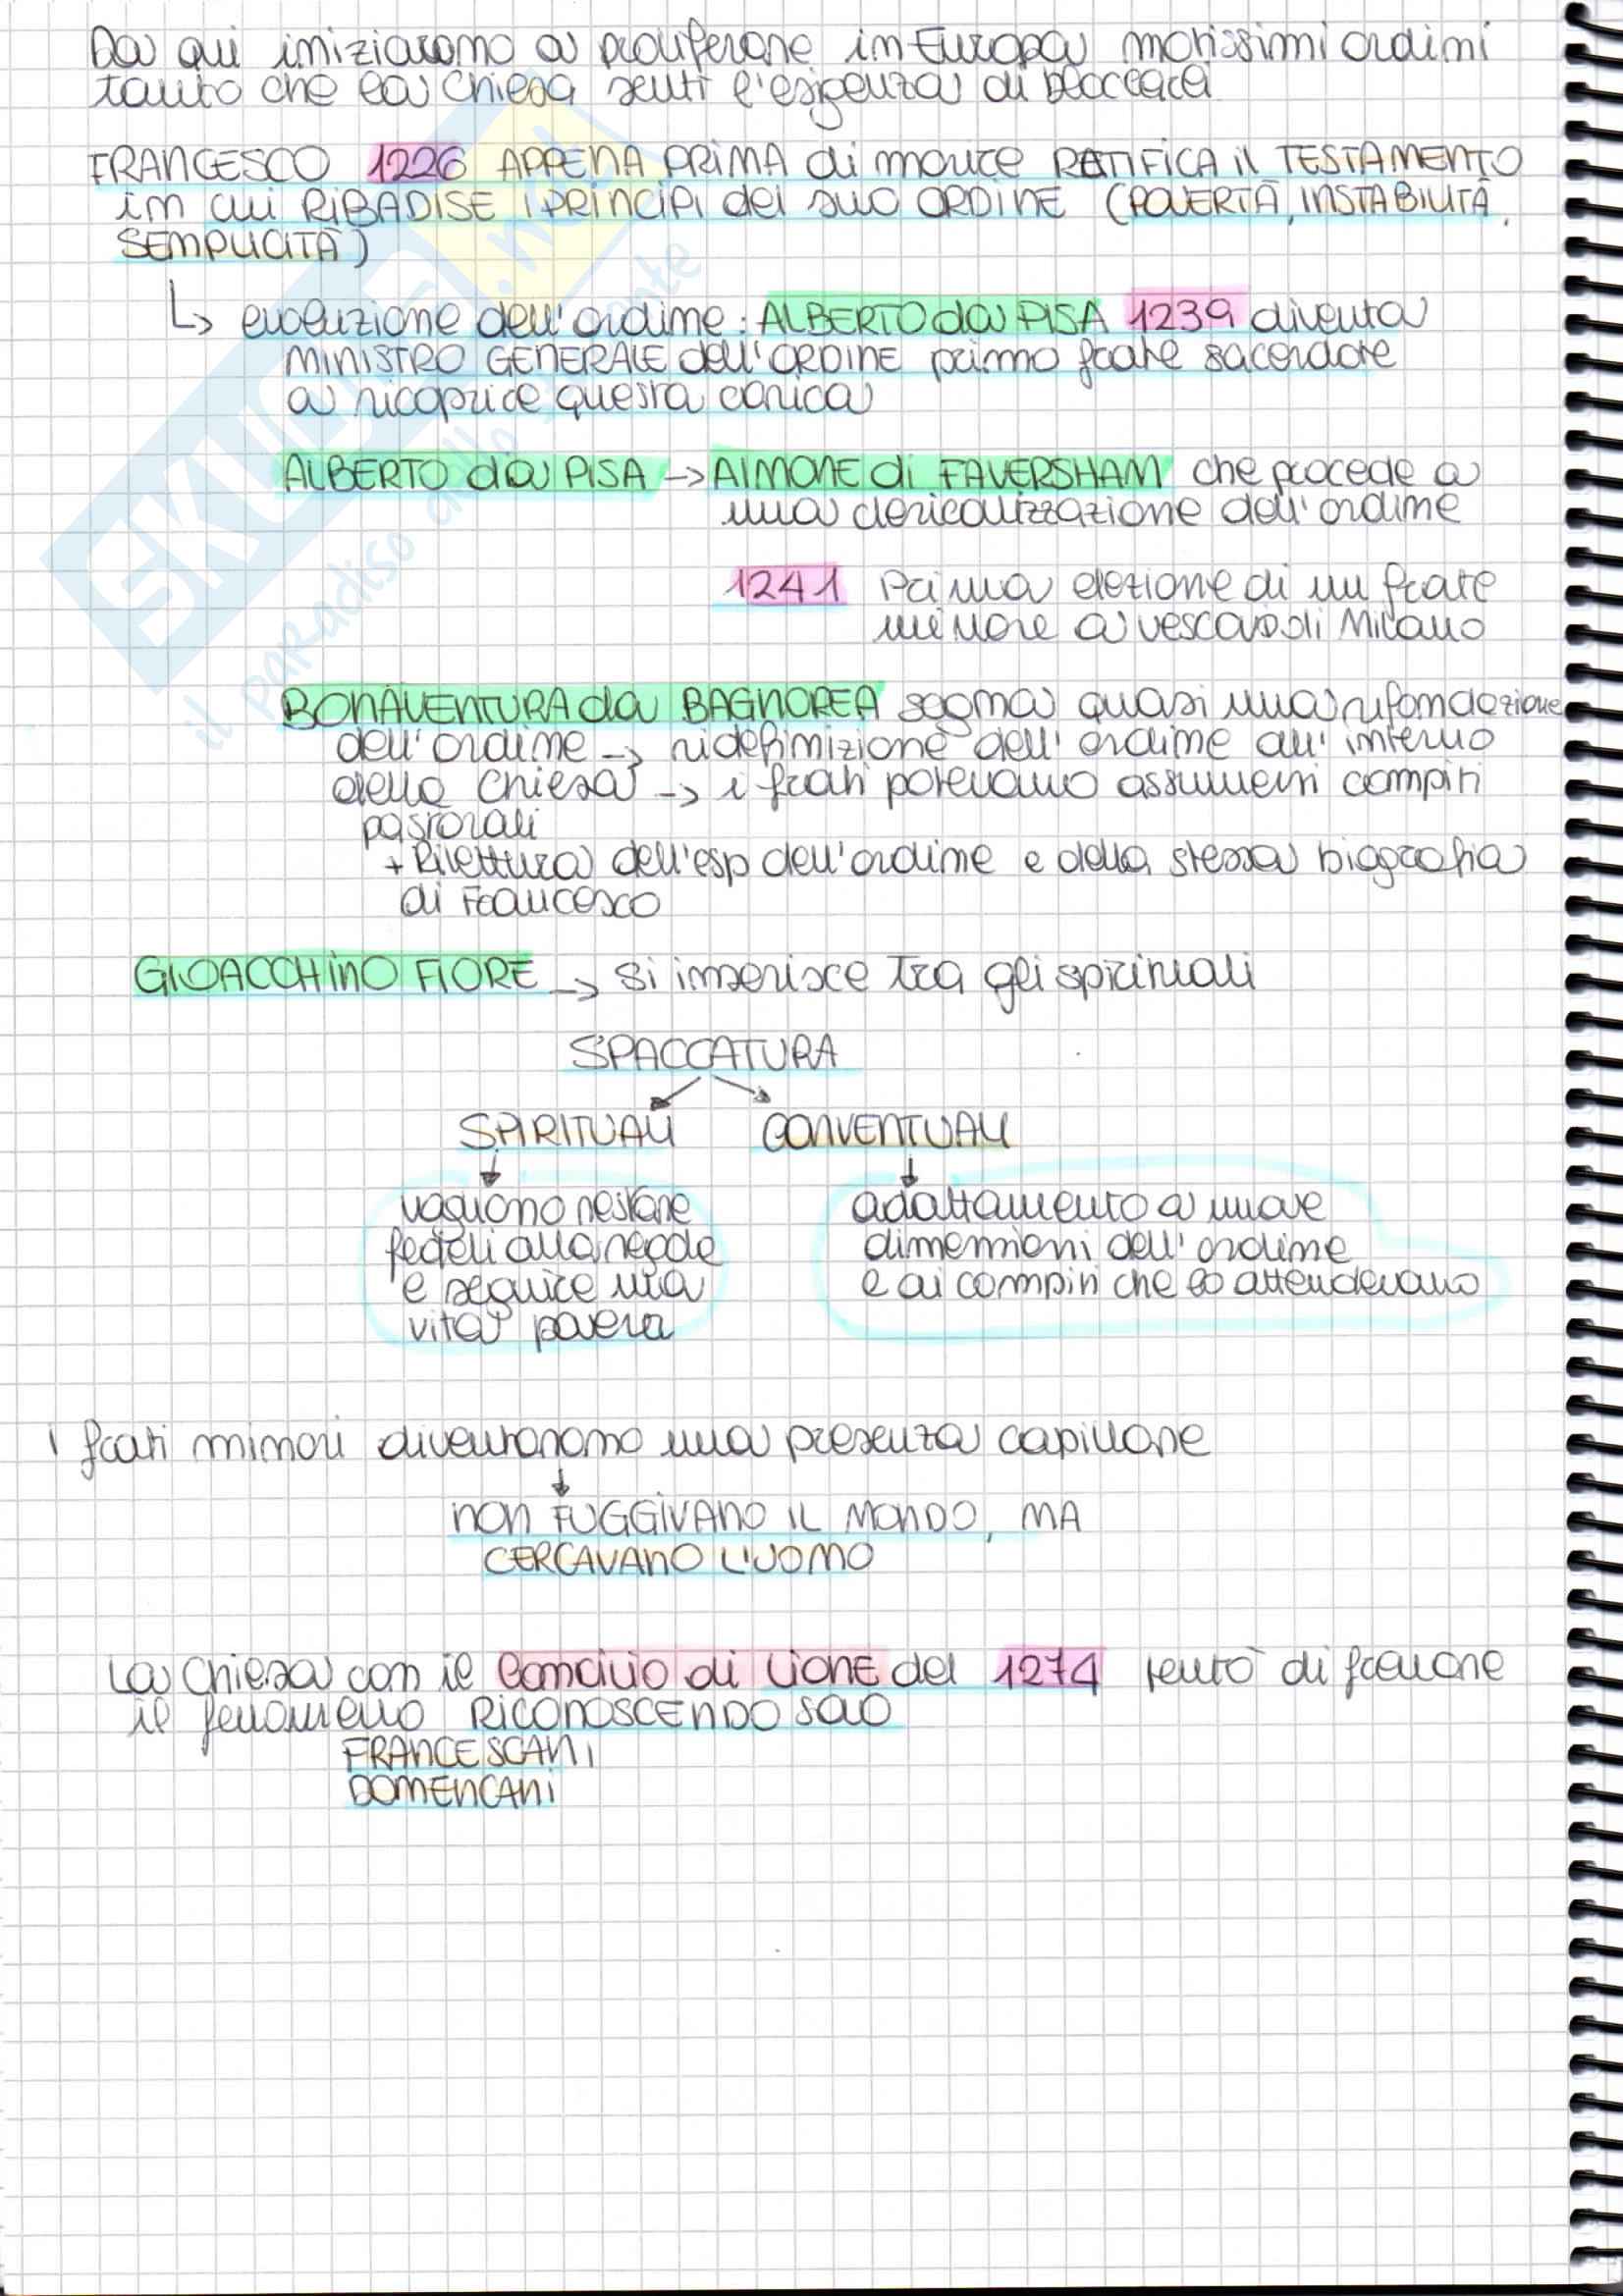 Da qui iniziarono a proliferare in Europa moltissimi ordini
tanto che la Chiesa sentì l'esigenza di bloccarli
FRANCESCO 1226 APPENA PRIMA di morire RATIFICA il TESTAMENTO
in cui RIBADISE i PRINCIPI del suo ORDINE (POVERTÀ, INSTABILITÀ,
SEMPLICITÀ)
↳ evoluzione dell'ordine: ALBERTO da PISA 1239 diventa
MINISTRO GENERALE dell'ORDINE primo frate sacerdote
a ricoprire questa carica
ALBERTO da PISA → AIMONE di FAVERSHAM che procede a
una clericalizzazione dell'ordine
1241 Prima elezione di un frate
minore a vescovo di Milano
BONAVENTURA da BAGNOREA segna quasi una rifondazione
dell'ordine → ridefinizione dell'ordine all'interno
della Chiesa → i frati potevano assumersi compiti
pastorali
+ Rilettura dell'esp dell'ordine e della stessa biografia
di Francesco
GIOACCHINO FIORE → si inserisce tra gli spirituali
SPACCATURA
SPIRITUALI CONVENTUALI
vogliono restare
fedeli alla regola
e seguire una
vita povera
adattamento a nuove
dimensioni dell'ordine
e ai compiti che lo attendevano
i frati minori diventarono una presenza capillare
non FUGGIVANO IL MONDO, MA
CERCAVANO L'UOMO
La Chiesa con il Concilio di Lione del 1274 tentò di frenare
il fenomeno RICONOSCENDO SOLO
FRANCESCANI
DOMENCANI
SKUOLA.net
il paradiso dello studente